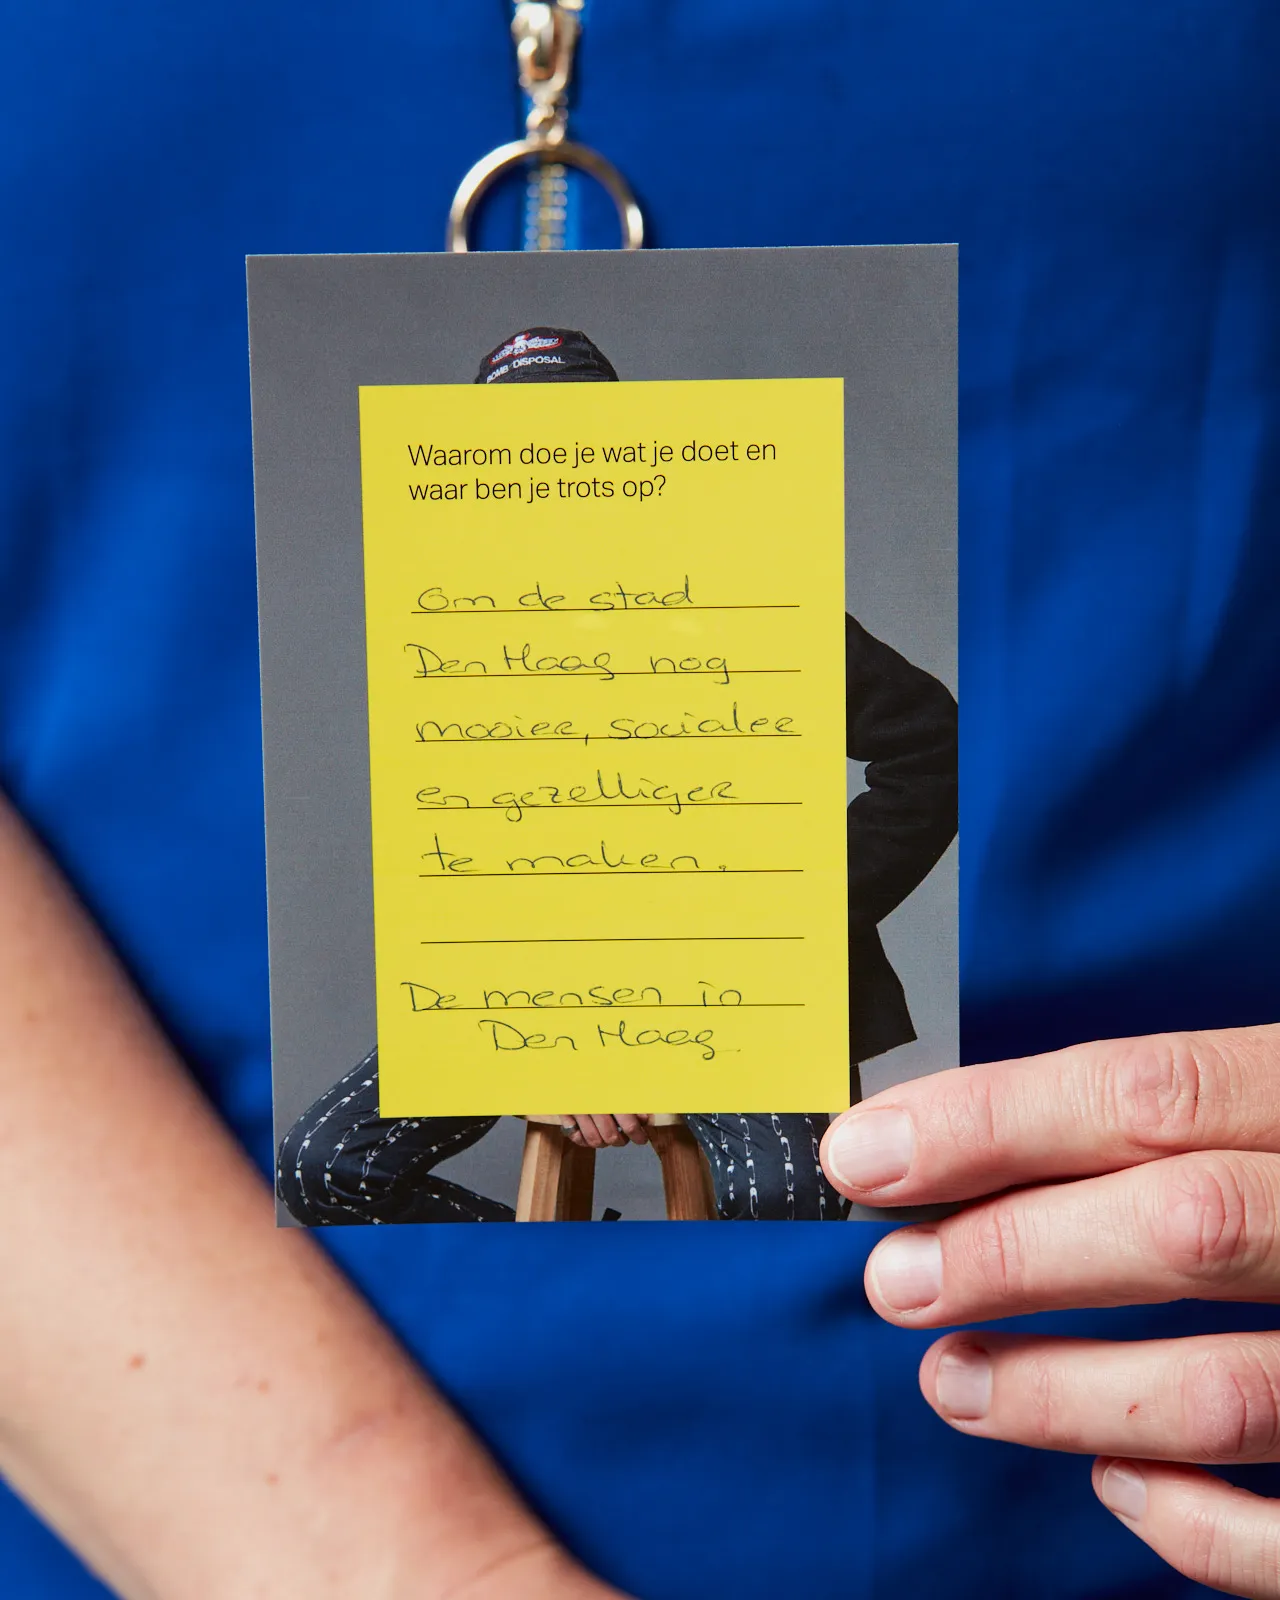 BOMB DISPOSAL
Waarom doe je wat je doet en
waar ben je trots op?
Om de stad
Den Haag nog
mooier, socialer
en gezelliger
te maken.
De mensen in
Den Haag.